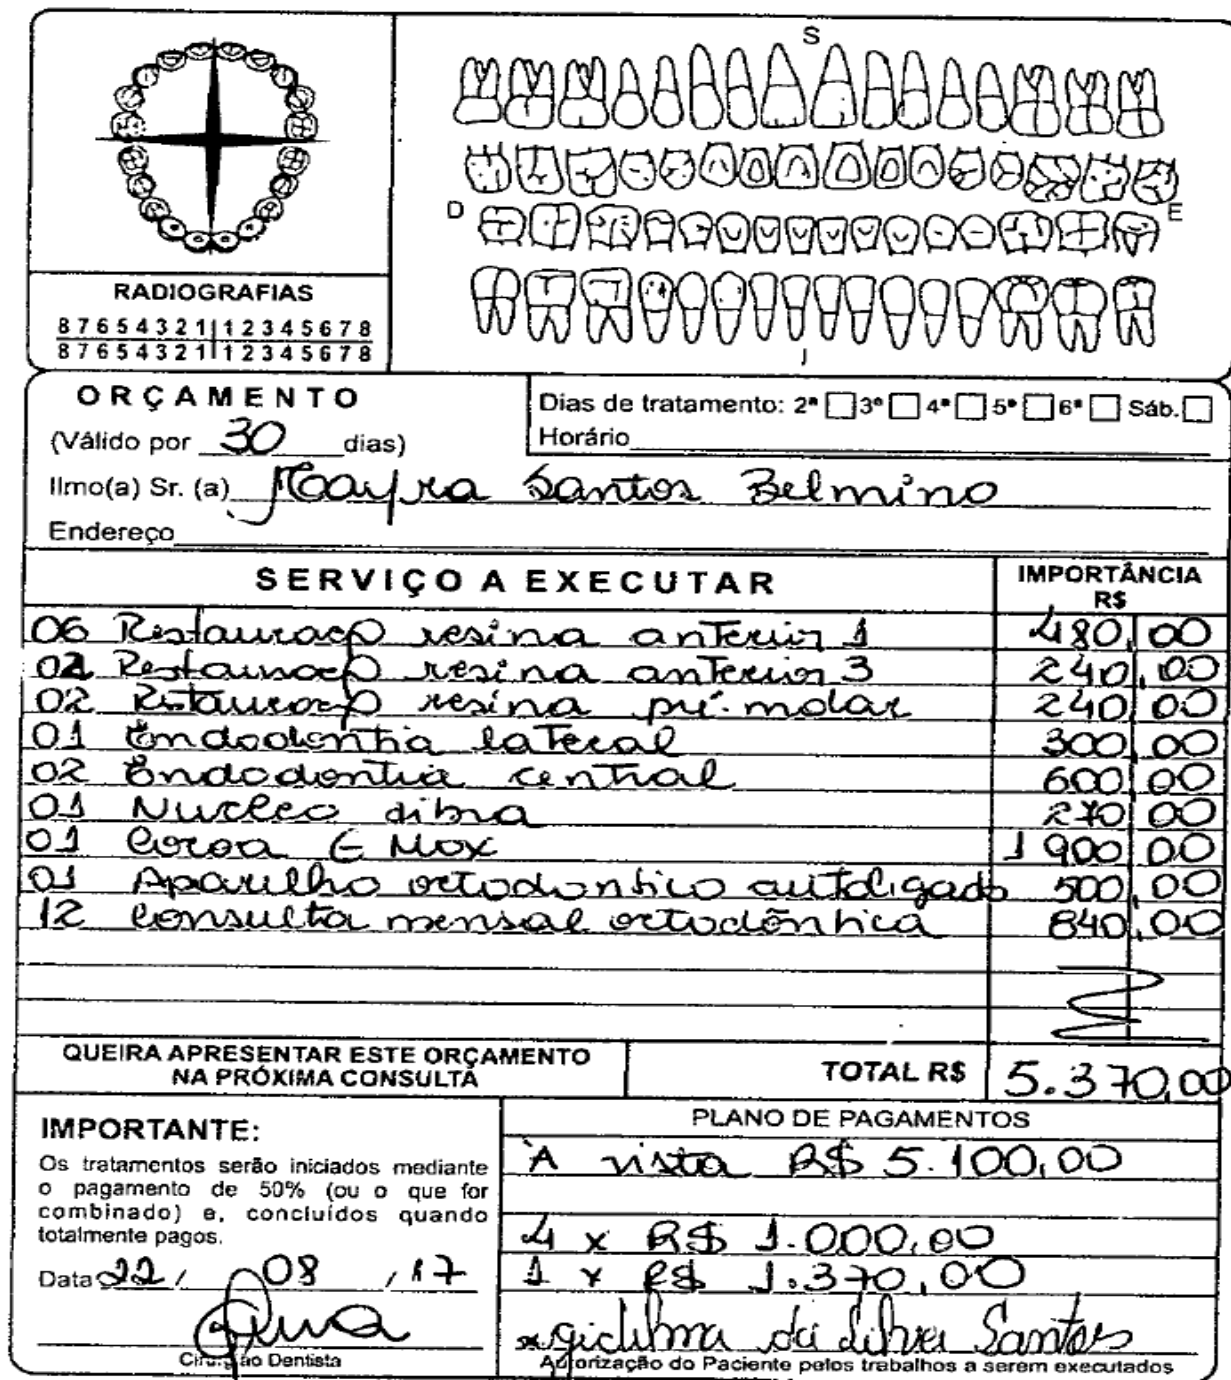 S
D
E
I
RADIOGRAFIAS
8 7 6 5 4 3 2 1 | 1 2 3 4 5 6 7 8
8 7 6 5 4 3 2 1 | 1 2 3 4 5 6 7 8
ORÇAMENTO
(Válido por 30 dias)
Dias de tratamento: 2ª 3ª 4ª 5ª 6ª Sáb.
Horário
Ilmo(a) Sr. (a) Mayra Santos Belmino
Endereço
SERVIÇO A EXECUTAR IMPORTÂNCIA R$
06 Restauração resina anterior 1 480,00
02 Restauração resina anterior 3 240,00
02 Restauração resina pré-molar 240,00
01 Endodontia lateral 300,00
02 Endodontia central 600,00
01 Nucleo fibra 270,00
01 Coroa E Max 1 900,00
01 Aparelho ortodontico autoligado 500,00
12 Consulta mensal ortodôntica 840,00
QUEIRA APRESENTAR ESTE ORÇAMENTO
NA PRÓXIMA CONSULTA
TOTAL R$ 5.370,00
IMPORTANTE:
Os tratamentos serão iniciados mediante
o pagamento de 50% (ou o que for
combinado) e, concluídos quando
totalmente pagos.
Data 22 / 08 / 17
Cirurgião Dentista
PLANO DE PAGAMENTOS
À vista R$ 5.100,00
4 x R$ 1.000,00
1 x R$ 1.370,00
da Silva Santos
Autorização do Paciente pelos trabalhos a serem executados